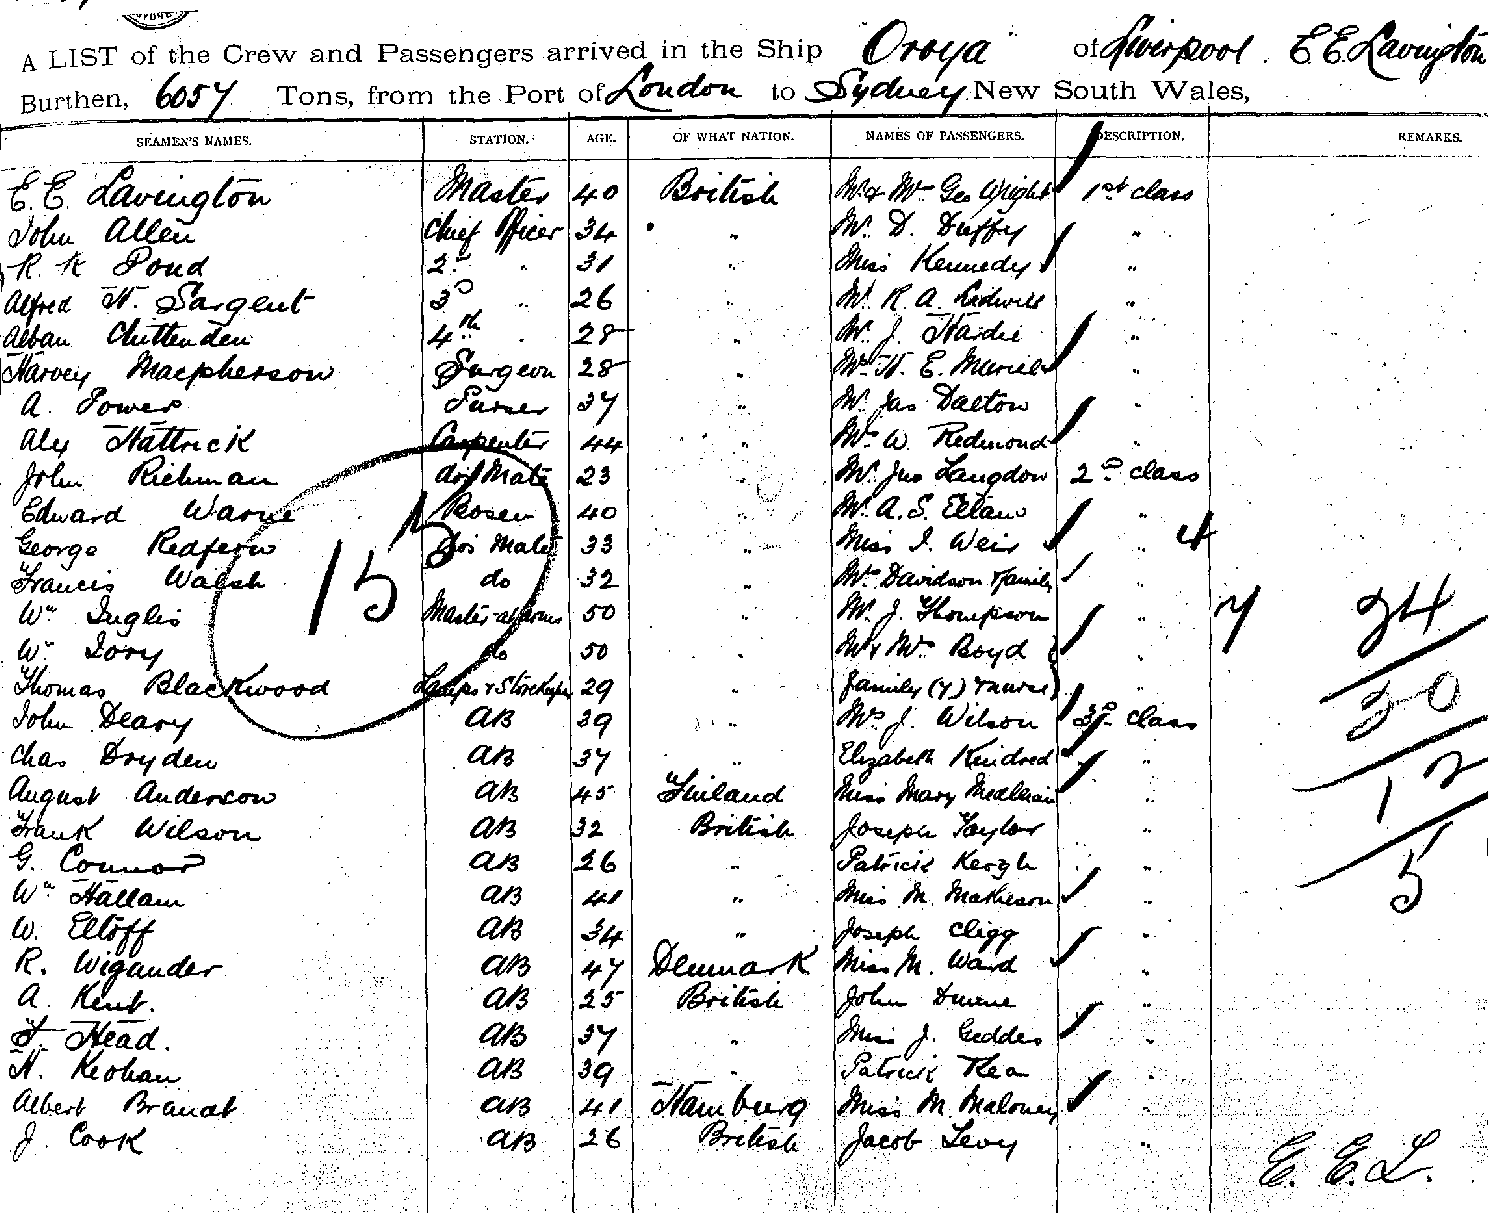 A LIST of the Crew and Passengers arrived in the Ship "Oroya" of Liverpool. E E Lavington
Burthen, 6057 Tons, from the Port of London to Sydney New South Wales,
SEAMEN'S NAMES. STATION. AGE. OF WHAT NATION. NAMES OF PASSENGERS. DESCRIPTION. REMARKS.
E. E. Lavington Master 40 British Mr & Mrs Geo Wright 1st class
John Allen Chief Officer 34 " Mr. D. Duffy "
R. K Pond 2nd " 31 " Miss Kennedy "
Alfred W. Sargent 3rd " 26 " Mr. R. A. Lidwill "
Alban Chittenden 4th " 28 " Mr. J. Hardie "
Harvey Macpherson Surgeon 28 " H. E. "
A. Power Purser 37 " Mr. Jas Dalton "
Alex Hattrick Carpenter 44 " W. Redmond "
John Richman do Mate 23 " Mr. Langdon 2nd class
Edward Warne Bosen 40 " Mr. A. S. "
George Redfern Bos Mate 33 " Miss I. Weir " 4
Francis Walsh do 32 " Mrs Davidson & family "
Wm Inglis Master-at-arms 50 " Mr. J. Thompson " 7 24
Wm Ivory do 50 " Mr & Mrs Boyd "
Thomas Blackwood Lamps & Storekeeper 29 " family (7) & nurse 30
John Deary AB 39 " J. Wilson 3rd class
Chas Dryden AB 37 " Elizabeth Kindred "
August Anderson AB 45 Finland Miss Mary " 12
Frank Wilson AB 32 British Joseph Taylor "
G. Connor AB 26 " Patrick Keogh " 5
Wm Hallam AB 41 " Miss M. Matheson "
W. Eltoff AB 34 " Joseph Clegg "
R. Wigander AB 47 Denmark Miss M. Ward "
A. Kent. AB 25 British John "
Head. AB 37 " Miss J. Geddes "
H. Keohan AB 39 " Patrick "
Albert Brandt AB 41 Hamburg Miss M Maloney "
J. Cook AB 26 British Jacob Levy "
15
E. E. L.